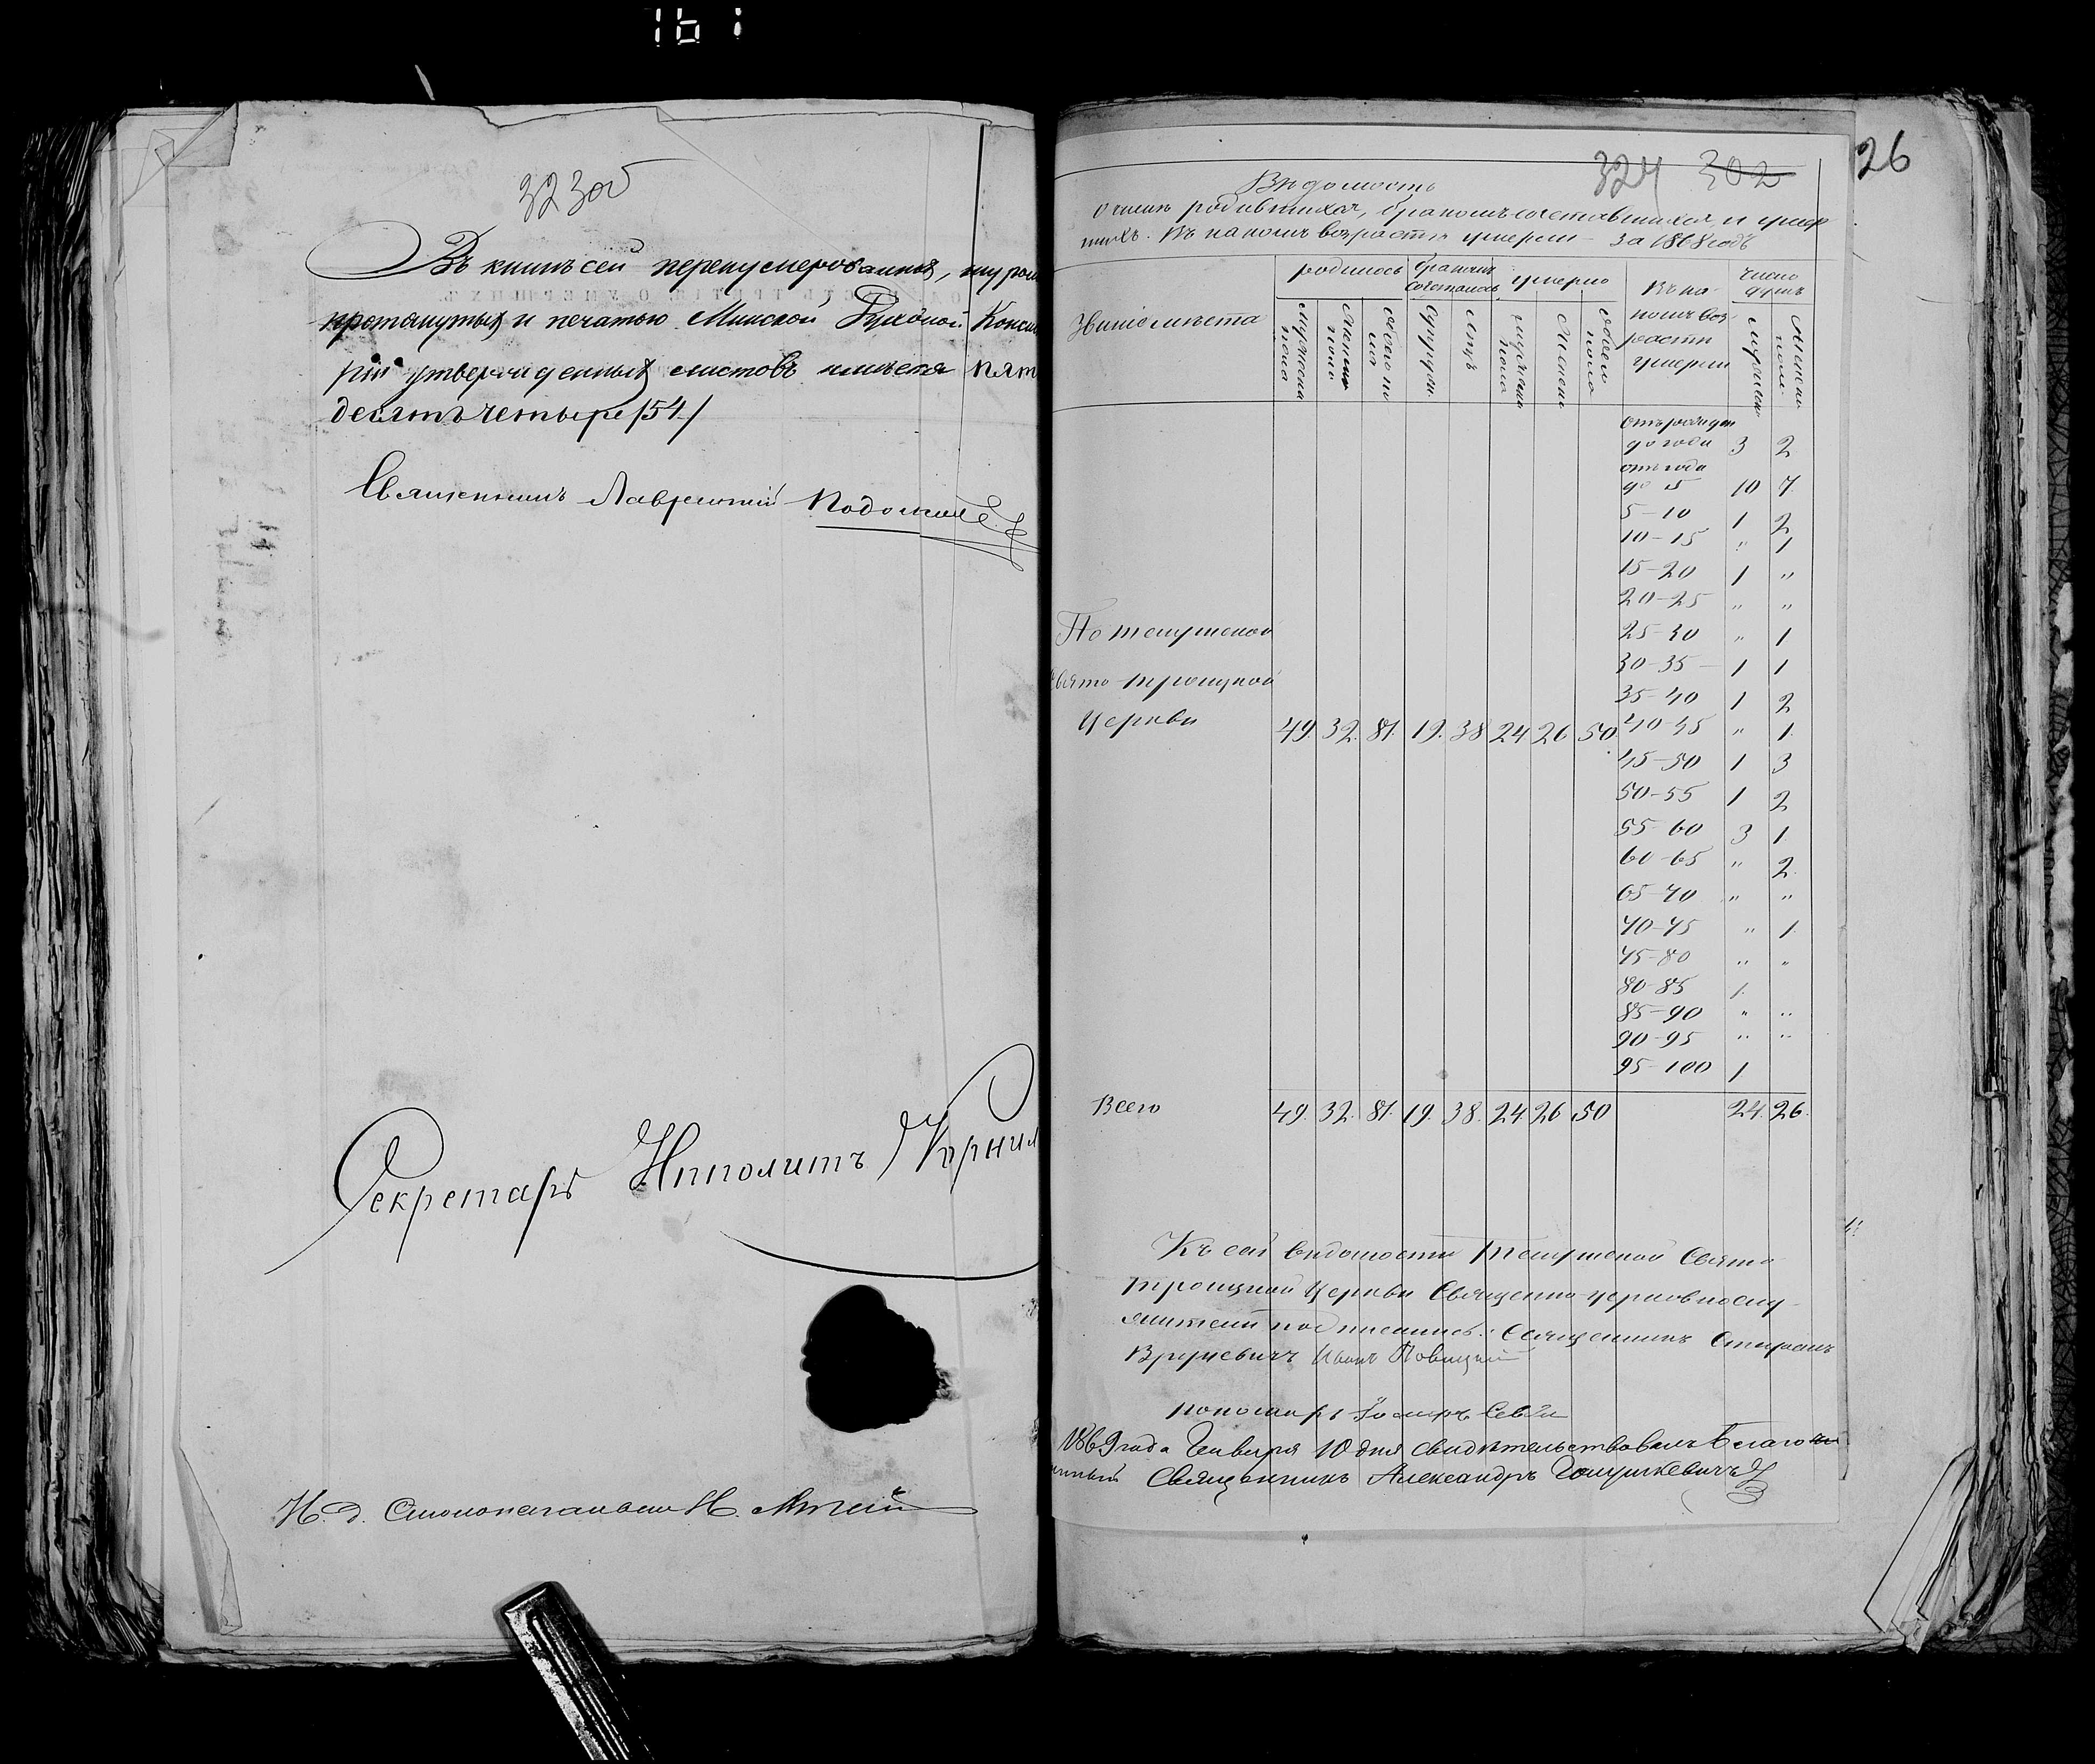 161
323об
Въ книгѣ сей перенумерованныхъ, шуром
протянутыхъ и печатью Минской Духовной Консисто
ріи утвержденныхъ листовъ имѣется пять
десятъ четыре /54/
Священникъ Лаврентій
Секретарь Ипполитъ Корнил
И. д. Столоначальника Н.
26
324 302
Вѣдомость
о числѣ родившихся, бракомъ сочетавшихся и умер
шихъ. Въ какомъ возрастѣ умерли за 1868 годъ
Званіе мѣста
родилось
бракомъ сочеталось
умерло
Въ ка-
комъ воз-
растѣ
умерли
число душъ
мужеска пола
женска пола
обоего пола
супруж.
лицъ
мужеска пола
женска
обоего пола
мужеска
женска пола
отъ рожден
до года 3 2
отъ года
до 5 10 7
5-10 1 2
10-15 " 1
15-20 1 "
20-25 " "
25-30 " 1
30-35 1 1
35-40 1 2
По
Свято-Троицкой
Церкви 49. 32. 81. 19. 38 24 26 50 40-45 " 1
45-50 1 3
50-55 1 2
55-60 3 1
60-65 " 2
65-70 " "
70-75 " 1
75-80 " "
80-85 1
85-90 " "
90-95 " "
95-100 1
Всего 49. 32. 81. 19. 38. 24. 26 50 24. 26.
Къ сей вѣдомости Свято
Троицкой Церкви Священно-церковнослу-
жители подписались: Священникъ Стефанъ
Иванъ
пономарь
1869 года Генваря 10 дня свидѣтельствовалъ Благочи
нный Священникъ Александръ